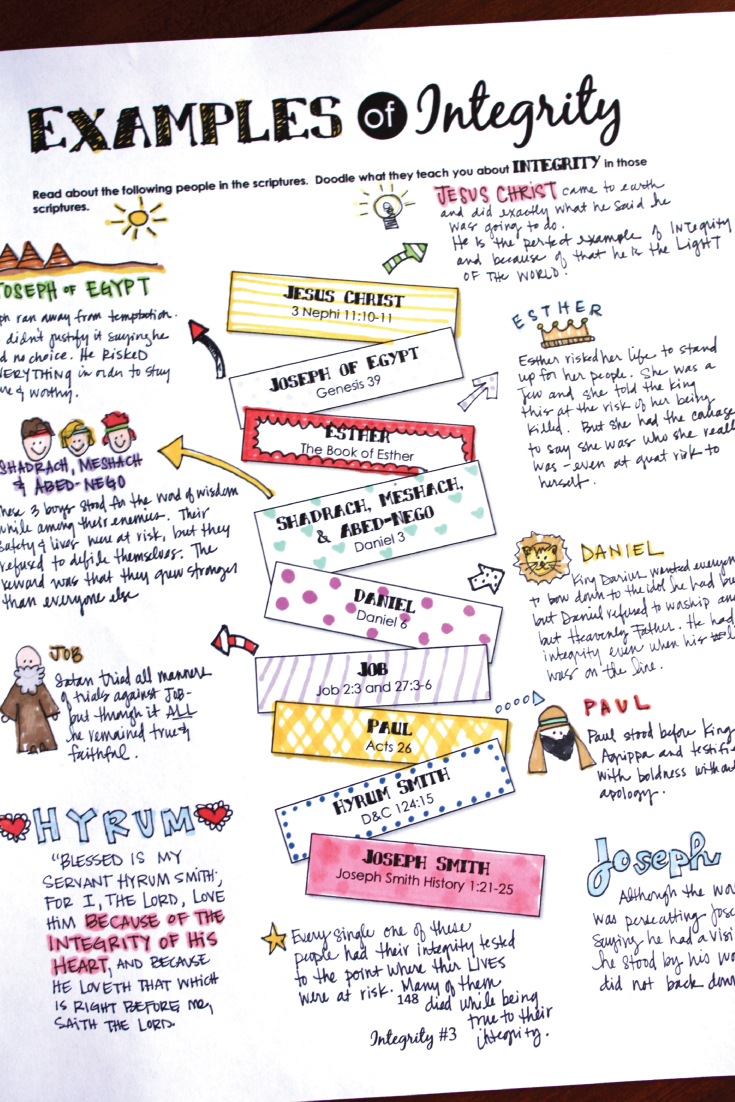 EXAMPLES of Integrity
Read about the following people in the scriptures. Doodle what they teach you about INTEGRITY in those
scriptures.
JESUS CHRIST came to earth
and did exactly what he said he
was going to do.
He is the perfect example of INTEGRITY
and because of that he is the LIGHT
OF THE WORLD!
JOSEPH OF EGYPT
ran away from temptation.
didn't justify it saying he
no choice. He RISKED
EVERYTHING in order to stay
& worthy.
JESUS CHRIST
3 Nephi 11:10-11
JOSEPH OF EGYPT
Genesis 39
ESTHER
The Book of Esther
SHADRACH, MESHACH,
& ABED-NEGO
Daniel 3
DANIEL
Daniel 6
JOB
Job 2:3 and 27:3-6
PAUL
Acts 26
HYRUM SMITH
D&C 124:15
JOSEPH SMITH
Joseph Smith History 1:21-25
ESTHER
Esther risked her life to stand
up for her people. She was a
Jew and she told the king
this at the risk of her being
killed. But she had the
to say she was who she
was - even at great risk to
herself.
SHADRACH, MESHACH
& ABED-NEGO
These 3 boys stood for the word of wisdom
while among their enemies. Their
safety & lives were at risk, but they
refused to defile themselves. The
reward was that they grew stronger
than everyone else
DANIEL
King Darius wanted
to bow down to the idol he had
but Daniel refused to worship
but Heavenly Father. He had
integrity even when his
was on the line.
JOB
Satan tried all manner
of trials against Job-
but through it ALL
he remained true &
faithful.
PAUL
Paul stood before King
Agrippa and
with boldness
apology.
HYRUM
"BLESSED IS MY
SERVANT HYRUM SMITH;
FOR I, THE LORD, LOVE
HIM BECAUSE OF THE
INTEGRITY OF HIS
HEART, AND BECAUSE
HE LOVETH THAT WHICH
IS RIGHT BEFORE ME,
SAITH THE LORD.
Joseph
Although the
was persecuting
saying he had a
he stood by his
did not back down
Every single one of these
people had their integrity tested
to the point where their LIVES
were at risk. Many of them
died while being
true to their
integrity.
148
Integrity #3